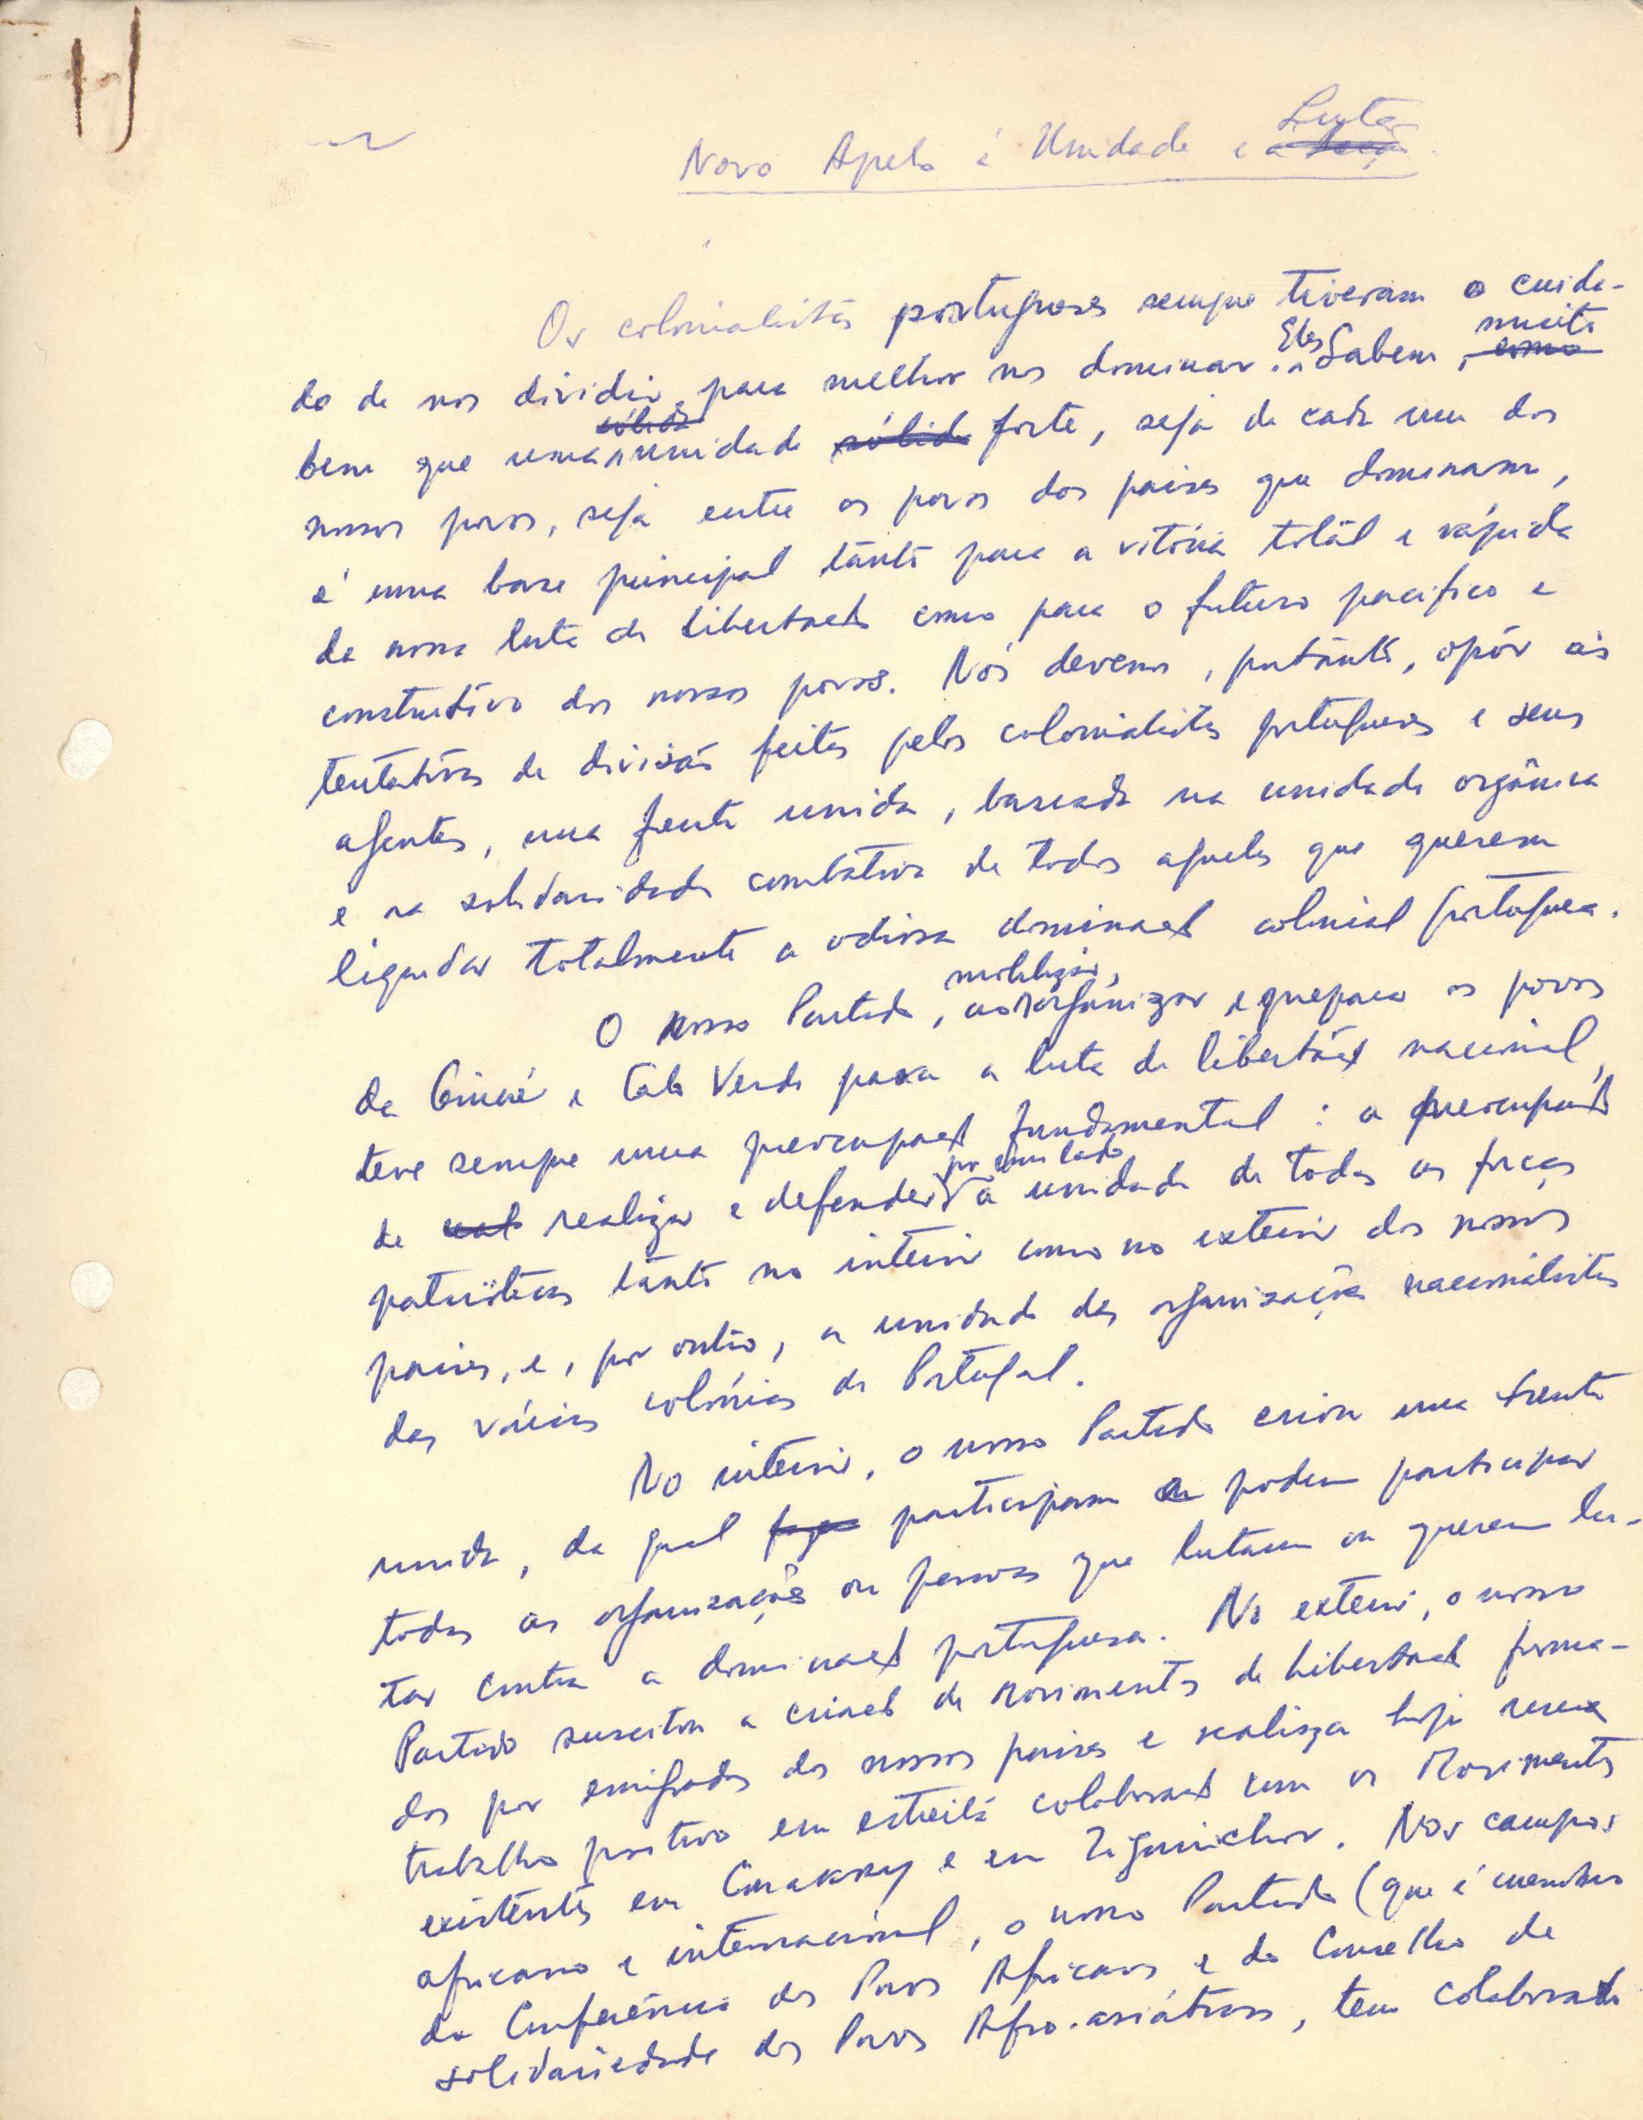 Novo Apelo à Unidade e à Luta
Os colonialistas portugueses sempre tiveram o cuida-
do de nos dividir, para melhor nos dominar. Eles Sabem, muito
bem que uma unidade forte, seja de cada um dos
nossos povos, seja entre os povos dos países que dominam,
é uma base principal tanto para a vitória total e rápida
da nossa luta de libertação como para o futuro pacífico e
construtivo dos nossos povos. Nós devemos, portanto, opôr às
tentativas de divisão feitas pelos colonialistas portugueses e seus
agentes, uma frente unida, baseada na unidade orgânica
e na solidariedade combativa de todos aqueles que querem
liquidar totalmente a odiosa dominação colonial portuguesa.
O nosso Partido, ao mobilizar, organizar e preparar os povos
da Guiné e Cabo Verde para a luta de libertação nacional,
teve sempre uma preocupação fundamental: a preocupação
de realizar e defender por um lado a unidade de todas as forças
patrióticas tanto no interior como no exterior dos nossos
países, e, por outro, a unidade das organizações nacionalistas
das várias colónias de Portugal.
No interior, o nosso Partido criou uma frente
unida, da qual participam ou podem participar
todas as organizações ou pessoas que lutam ou querem lu-
tar contra a dominação portuguesa. No exterior, o nosso
Partido suscitou a criação de Movimentos de Libertação forma-
dos por emigrados dos nossos países e realiza hoje
trabalho positivo em estreita colaboração com os Movimentos
existentes em Conakry e em Ziguinchor. Nos campos
africano e internacional, o nosso Partido (que é membro
da Conferência dos Povos Africanos e do Conselho de
solidariedade dos Povos Afro-asiáticos, tem colaborado